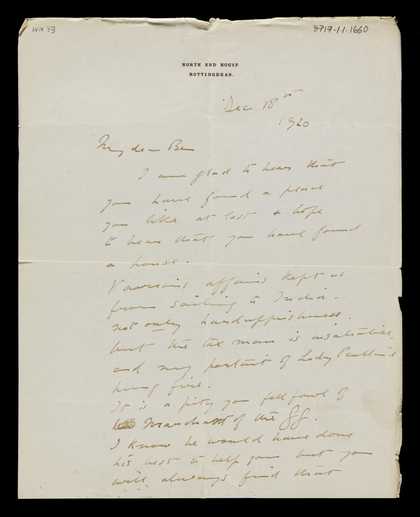 WN 43
8717·1·1·1660
NORTH END HOUSE
ROTTINGDEAN.
Dec 18th
1920
My dear Ben
I am glad to hear that
you have found a place
you like at last & hope
to hear that you have found
a house.
Various affairs kept us
from sailing to India.
not only hardupishness.
but the the man is
and my portrait of Lady
hung fire.
It is a pity you fell foul of
Marchant of the GG.
I know he would have done
his best to help you but you
will always find that